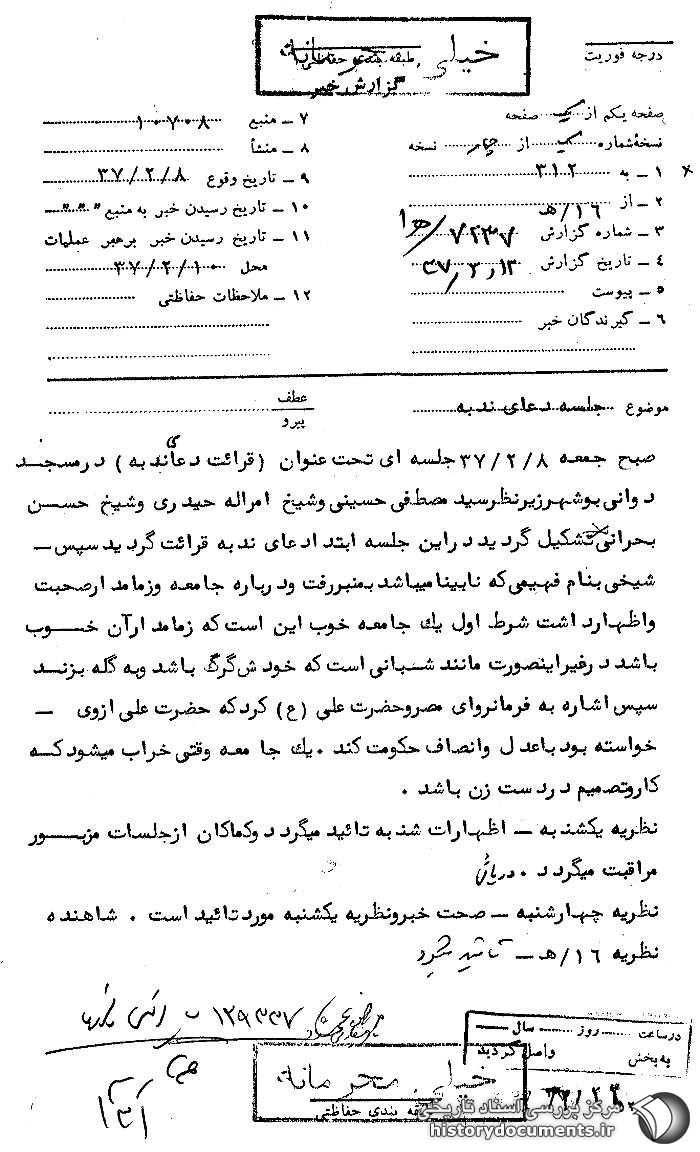 خیلی محرمانه
طبقه بندی حفاظتی
گزارش خبر
درجه فوریت
صفحه یکم از یک صفحه
نسخه شماره یک از چهار نسخه
۱ ـ به ۳۱۲
۲ ـ از ۱۶/هـ
۳ ـ شماره گزارش ۷۲۳۷/ه‍ ۱
۴ ـ تاریخ گزارش ۳۷/۲/۱۳
۵ ـ پیوست
۶ ـ گیرندگان خبر
۷ ـ منبع ۱۰۷۰۸
۸ ـ منشأ
۹ ـ تاریخ وقوع ۳۷/۲/۸
۱۰ ـ تاریخ رسیدن خبر به منبع " " "
۱۱ ـ تاریخ رسیدن خبر برهبر عملیات
محل ۳۷/۲/۱۰
۱۲ ـ ملاحظات حفاظتی
موضوع جلسه دعای ندبه
عطف
پیرو
صبح جمعه ۳۷/۲/۸ جلسه ای تحت عنوان (قرائت دعای ندبه) در مسجد
دوانی بوشهر زیر نظر سید مصطفی حسینی وشیخ امراله حیدری وشیخ حسن
بحرانی تشکیل گردید در این جلسه ابتدا دعای ندبه قرائت گردید سپس ـ
شیخی بنام فهیمی که نابینا میباشد بمنبر رفت ودر باره جامعه وزمامدار صحبت
واظهار داشت شرط اول یك جامعه خوب این است که زمامدار آن خوب
باشد در غیر اینصورت مانند شبانی است که خودش گرگ باشد وبه گله بزند
سپس اشاره به فرمانروای مصر وحضرت علی (ع) کرد که حضرت علی از وی ـ
خواسته بود با عدل وانصاف حکومت کند . یك جامعه وقتی خراب میشود که
کار وتصمیم در دست زن باشد .
نظریه یکشنبه ـ اظهارات شنبه تائید میگردد وکماکان از جلسات مزبور
مراقبت میگردد . دریائی
نظریه چهارشنبه ـ صحت خبر ونظریه یکشنبه مورد تائید است . شاهنده
نظریه ۱۶/هـ ـ تائید میگردد
۱۲۹۳۳۷
در ساعت روز سال
به بخش واصل گردید
خیلی محرمانه
طبقه بندی حفاظتی
مرکز بررسی اسناد تاریخی
historydocuments.ir